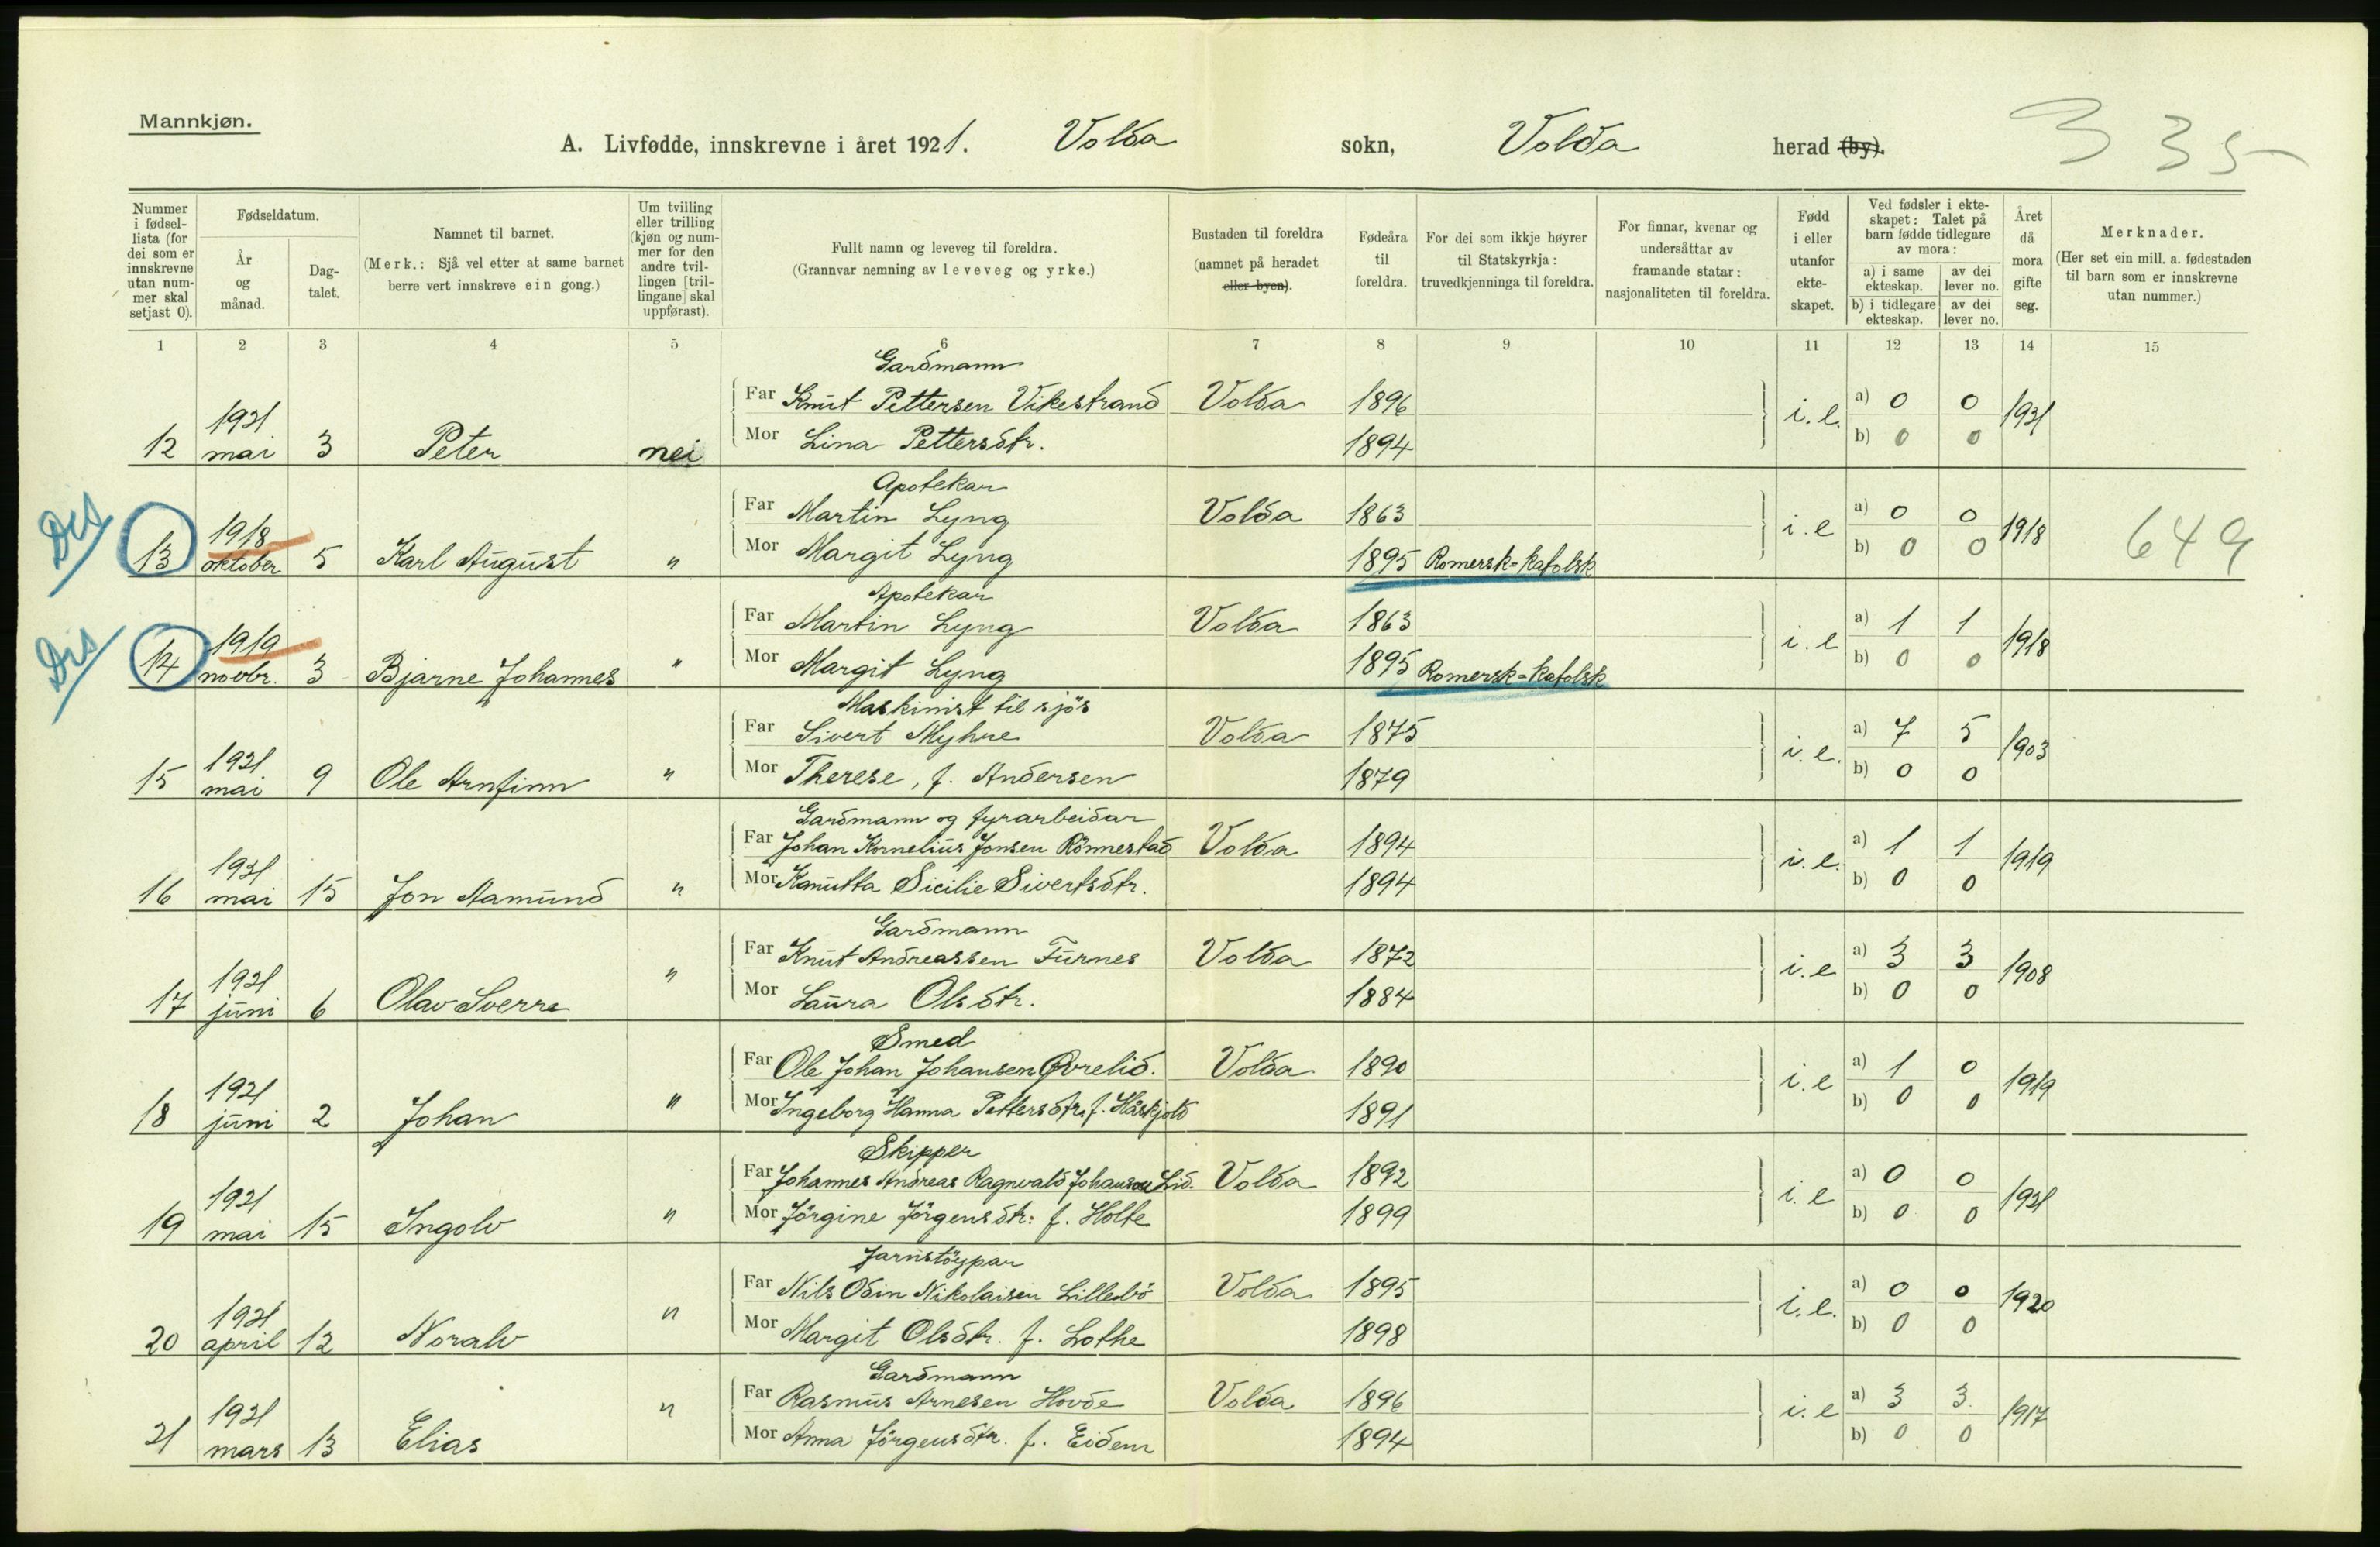 Mannkjøn.
A. Livfødde, innskrevne i året 1921. Volda sokn, Volda herad (by).
335
Nummer i fødsel-lista (for dei som er innskrevne utan num-mer skal setjast 0).
Fødseldatum.
År og månad.
Dag-talet.
Namnet til barnet.
(Merk.: Sjå vel etter at same barnet berre vert innskreve ein gong.)
Um tvilling eller trilling (kjøn og num-mer for den andre tvil-lingen [tril-lingane] skal uppførast).
Fullt namn og leveveg til foreldra.
(Grannvar nemning av leveveg og yrke.)
Bustaden til foreldra (namnet på heradet eller byen).
Fødeåra til foreldra.
For dei som ikkje høyrer til Statskyrkja: truvedkjenninga til foreldra.
For finnar, kvenar og undersåttar av framande statar: nasjonaliteten til foreldra.
Fødd i eller utanfor ekte-skapet.
Ved fødsler i ekte-skapet: Talet på barn fødde tidlegare av mora:
a) i same ekteskap. av dei lever no.
b) i tidlegare ekteskap. av dei lever no.
Året då mora gifte seg.
Merknader.
(Her set ein mill. a. fødestaden til barn som er innskrevne utan nummer.)
1 2 3 4 5 6 7 8 9 10 11 12 13 14 15
Gardmann
Far Knut Pettersen Vikestrand Volda 1896 a) 0 0
12 1921 mai 3 Peter nei i.e. 1921
Mor Lina Pettersdtr. 1894 b) 0 0
Apotekar
Far Martin Lyng Volda 1863 a) 0 0
Dis 13 1918 oktober 5 Karl August " i.e 1918 649
Mor Margit Lyng 1895 Romersk=katolsk b) 0 0
Apotekar
Far Martin Lyng Volda 1863 a) 1 1
Dis 14 1919 novbr. 3 Bjarne Johannes " i.e 1918
Mor Margit Lyng 1895 Romersk=katolsk b) 0 0
Maskinist til sjös
Far Sivert Myhre Volda 1875 a) 7 5
15 1921 mai 9 Ole Arnfinn " i.e. 1903
Mor Therese, f. Andersen 1879 b) 0 0
Gardmann og fyrarbeidar
Far Johan Kornelius Jonsen Rönnestad Volda 1894 a) 1 1
16 1921 mai 15 Jon Aamund " i.e. 1919
Mor Kanutta Sicilie Sivertsdtr. 1894 b) 0 0
Gardmann
Far Knut Andreassen Furnes Volda 1872 a) 3 3
17 1921 juni 6 Olav Sverre " i.e 1908
Mor Laura Olsdtr. 1884 b) 0 0
Smed
Far Ole Johan Johansen Øvrelid. Volda 1890 a) 1 0
18 1921 juni 2 Johan " i.e 1919
Mor Ingeborg Hanna Pettersdtr. f. Håskjold 1891 b) 0 0
Skipper
Far Johannes Andreas Ragnvald Johansen Lid. Volda 1892 a) 0 0
19 1921 mai 15 Ingolv " i.e 1921
Mor Jörgine Jörgensdtr: f. Holte 1899 b) 0 0
Jarnstöypar
Far Nils Odin Nikolaisen Lillebö Volda 1895 a) 0 0
20 1921 april 12 Noralv " i.e. 1920
Mor Margit Olsdtr. f. Lothe 1898 b) 0 0
Gardmann
Far Rasmus Arnesen Hovde Volda 1896 a) 3 3
21 1921 mars 13 Elias " i.e 1917
Mor Anna Jörgensdtr. f. Eidem 1894 b) 0 0